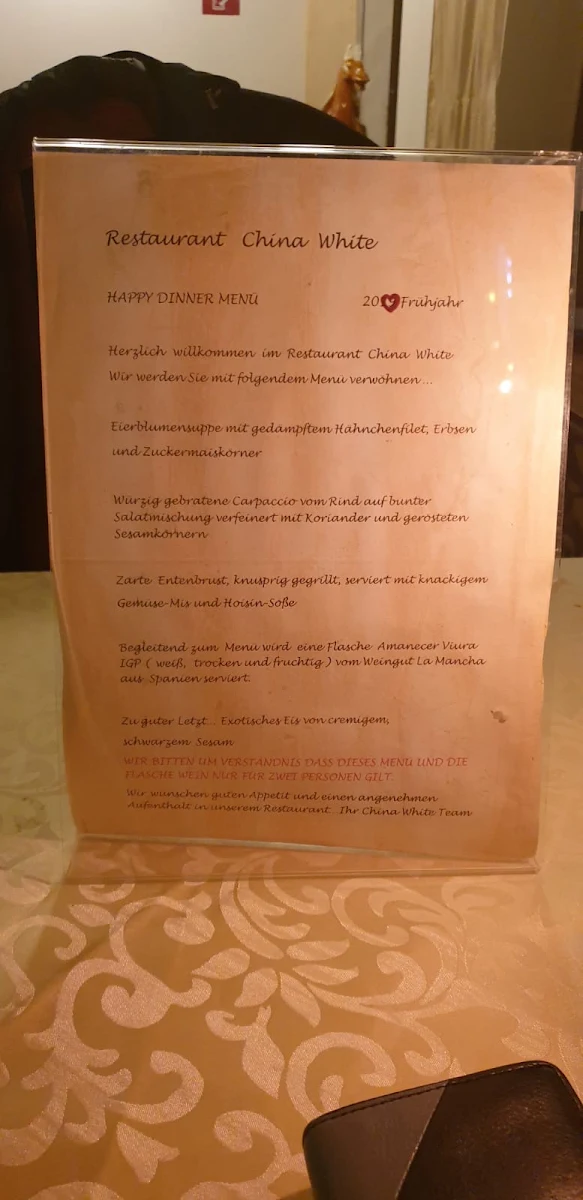 Restaurant China White
HAPPY DINNER MENÜ 20 Frühjahr
Herzlich willkommen im Restaurant China White
Wir werden Sie mit folgendem Menü verwöhnen...
Eierblumensuppe mit gedämpftem Hähnchenfilet, Erbsen
und Zuckermaiskörner
Würzig gebratene Carpaccio vom Rind auf bunter
Salatmischung verfeinert mit Koriander und gerösteten
Sesamkörnern
Zarte Entenbrust, knusprig gegrillt, serviert mit knackigem
Gemüse-Mis und Hoisin-Soße
Begleitend zum Menü wird eine Flasche Amanecer Viura
IGP ( weiß, trocken und fruchtig ) vom Weingut La Mancha
aus Spanien serviert.
Zu guter Letzt... Exotisches Eis von cremigem,
schwarzem Sesam
WIR BITTEN UM VERSTÄNDNIS DASS DIESES MENÜ UND DIE
FLASCHE WEIN NUR FÜR ZWEI PERSONEN GILT.
Wir wünschen guten Appetit und einen angenehmen
Aufenthalt in unserem Restaurant. Ihr China White Team